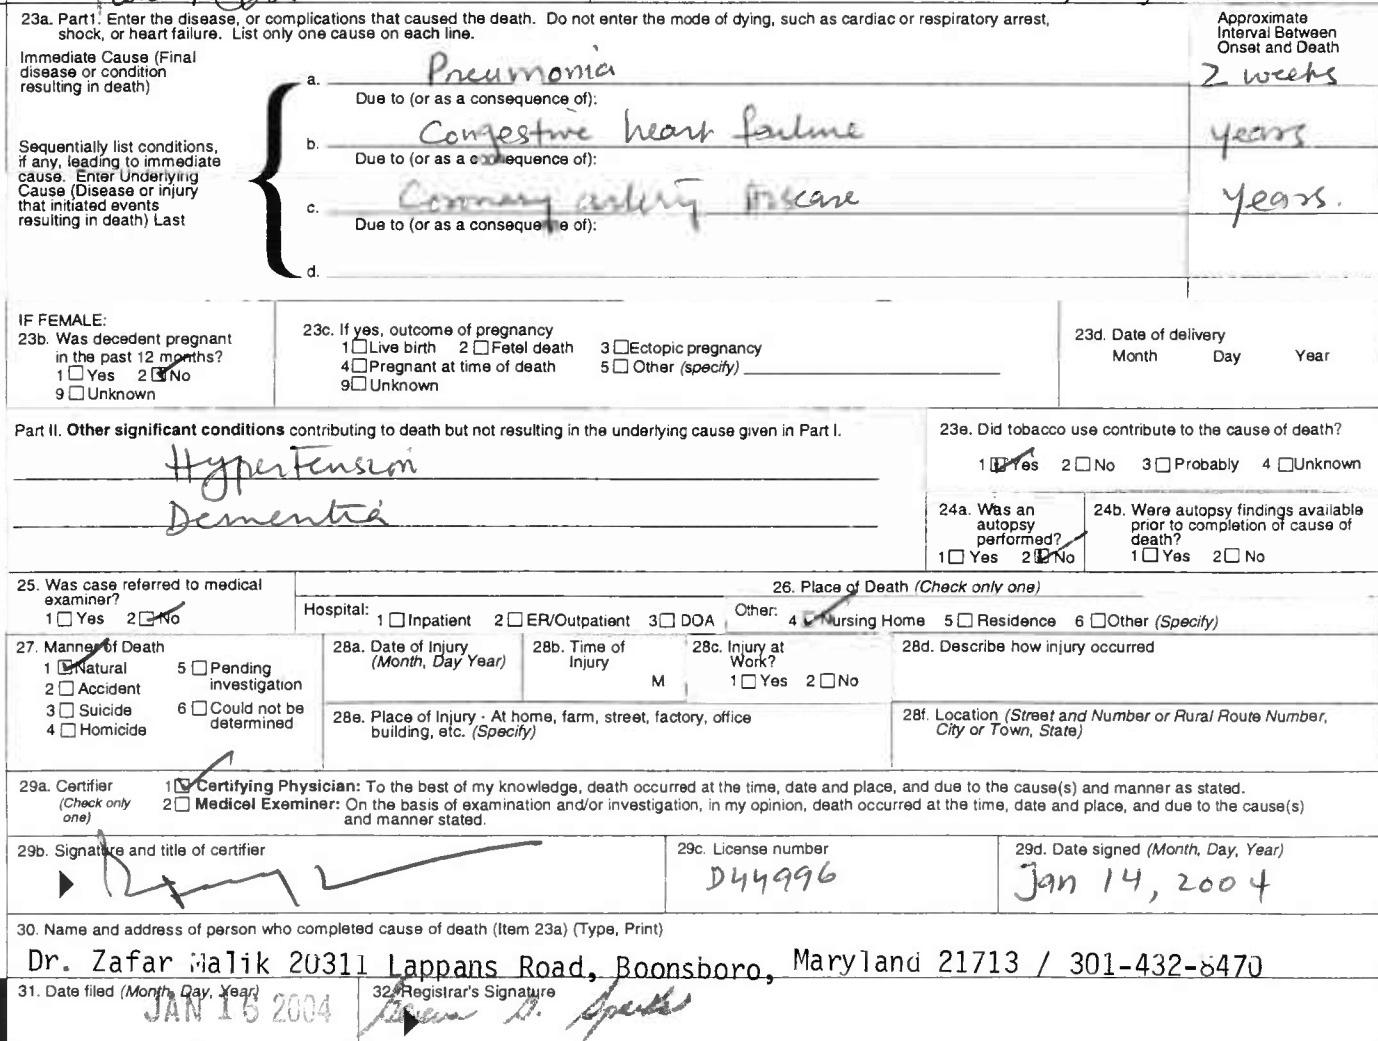 23a. Part1. Enter the disease, or complications that caused the death. Do not enter the mode of dying, such as cardiac or respiratory arrest,
shock, or heart failure. List only one cause on each line.
Approximate
Interval Between
Onset and Death
Immediate Cause (Final
disease or condition
resulting in death)
a. Pneumonia 2 weeks
Due to (or as a consequence of):
b. Congestive heart failure years
Due to (or as a consequence of):
Sequentially list conditions,
if any, leading to immediate
cause. Enter Underlying
Cause (Disease or injury
that initiated events
resulting in death) Last
c. Coronary artery Disease years.
Due to (or as a consequence of):
d.
IF FEMALE:
23b. Was decedent pregnant
in the past 12 months?
1 Yes 2 No
9 Unknown
23c. If yes, outcome of pregnancy
1 Live birth 2 Fetel death 3 Ectopic pregnancy
4 Pregnant at time of death 5 Other (specify)
9 Unknown
23d. Date of delivery
Month Day Year
Part II. Other significant conditions contributing to death but not resulting in the underlying cause given in Part I.
Hypertension
Dementia
23e. Did tobacco use contribute to the cause of death?
1 Yes 2 No 3 Probably 4 Unknown
24a. Was an
autopsy
performed?
1 Yes 2 No
24b. Were autopsy findings available
prior to completion of cause of
death?
1 Yes 2 No
25. Was case referred to medical
examiner?
1 Yes 2 No
26. Place of Death (Check only one)
Hospital: 1 Inpatient 2 ER/Outpatient 3 DOA Other: 4 Nursing Home 5 Residence 6 Other (Specify)
27. Manner of Death
1 Natural 5 Pending
investigation
2 Accident
3 Suicide 6 Could not be
determined
4 Homicide
28a. Date of Injury
(Month, Day Year)
28b. Time of
Injury
M
28c. Injury at
Work?
1 Yes 2 No
28d. Describe how injury occurred
28e. Place of Injury - At home, farm, street, factory, office
building, etc. (Specify)
28f. Location (Street and Number or Rural Route Number,
City or Town, State)
29a. Certifier
(Check only
one)
1 Certifying Physician: To the best of my knowledge, death occurred at the time, date and place, and due to the cause(s) and manner as stated.
2 Medical Exeminer: On the basis of examination and/or investigation, in my opinion, death occurred at the time, date and place, and due to the cause(s)
and manner stated.
29b. Signature and title of certifier
29c. License number
D44996
29d. Date signed (Month, Day, Year)
Jan 14, 2004
30. Name and address of person who completed cause of death (Item 23a) (Type, Print)
Dr. Zafar Malik 20311 Lappans Road, Boonsboro, Maryland 21713 / 301-432-8470
31. Date filed (Month, Day, Year)
JAN 16 2004
32. Registrar's Signature
D. Sparks